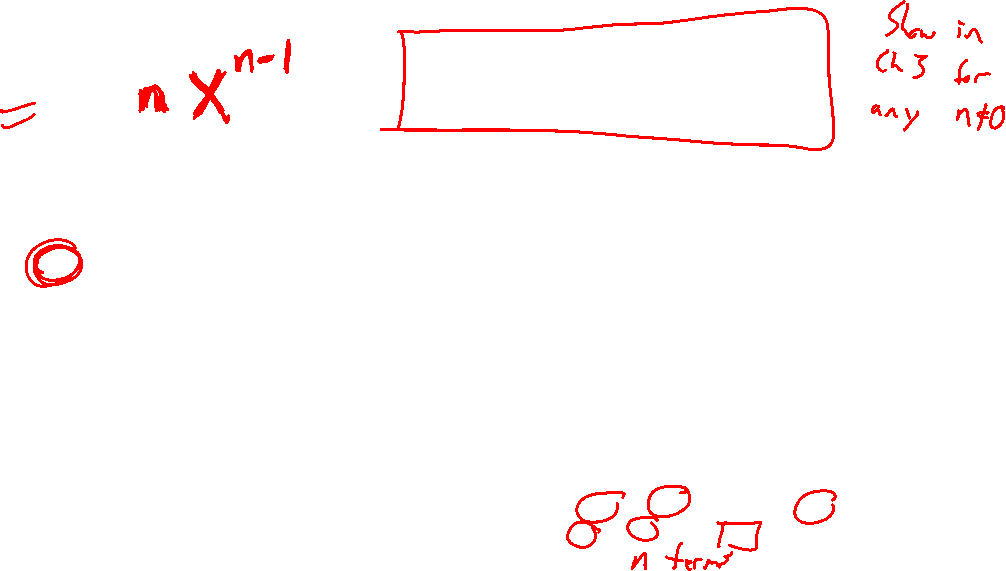 = n x^{n-1}
Show in
Ch 3 for
any n≠0
n terms